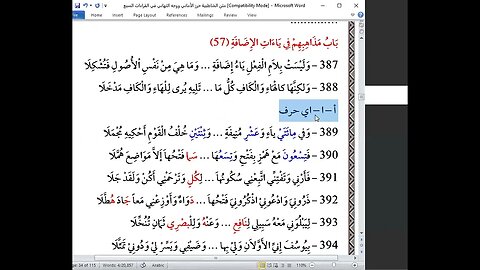 متن الشاطبية حرز الأماني ووجه التهاني في القراءات السبع [Compatibility Mode] - Microsoft Word
بَابُ مَذَاهِبِهِمْ فِي يَاءَاتِ الإِضَافَةِ (57)
387 - وَلَيْسَتْ بِلاَمِ الْفِعْلِ يَاءُ إِضَافَةٍ ... وَمَا هِيَ مِنْ نَفْسِ الْأُصُولِ فَتُشْكِلَا
388 - وَلكِنَّهَا كَالْهَاءِ وَالْكَافِ كُلُّ مَا ... تَلِيهِ يُرى لِلْهَاءِ وَالْكَافِ مَدْخَلَا
أ-ا-اي حرف
389 - وَفي مِائَتَيْ يَاءٍ وَعَشْرٍ مُنِيفَةٍ ... وَثِنْتَيْنِ خُلْفُ الْقَوْمِ أَحْكِيهِ مُجْمَلَا
390 - فَتِسْعُونَ مَعْ هَمْزٍ بِفَتْحٍ وَتِسْعُهَا ... سَما فَتْحُهَا إِلاَّ مَوَاضِعَ هُمَّلَا
391 - فَأَرْنِي وَتَفْتِنِّي اتَّبِعْنِي سُكُونُهَا ... لِكُلٍّ وَتَرْحَمْنِي أَكُنْ وَلَقَدْ جَلَا
392 - ذَرُونِي وَادْعُونِي اذْكُرُونِي فَتْحُهَا ... دَوَاءٌ وَأَوْزِعْنِي مَعاً جَادَ هُطَّلَا
393 - لِيَبْلُوَنِي مَعْهُ سَبِيلِي لِنَافِعٍ ... وَعَنْهُ وَلِلْبَصْرِي ثَمَانٍ تُنُخِّلَا
394 - بِيُوسُفَ إِنِّي الأَوَّلاَنِ وَلِي بِهَا ... وَضَيْفِي وَيَسِّرْ لِي وَدُونِي تَمَثَّلَا
Arabic